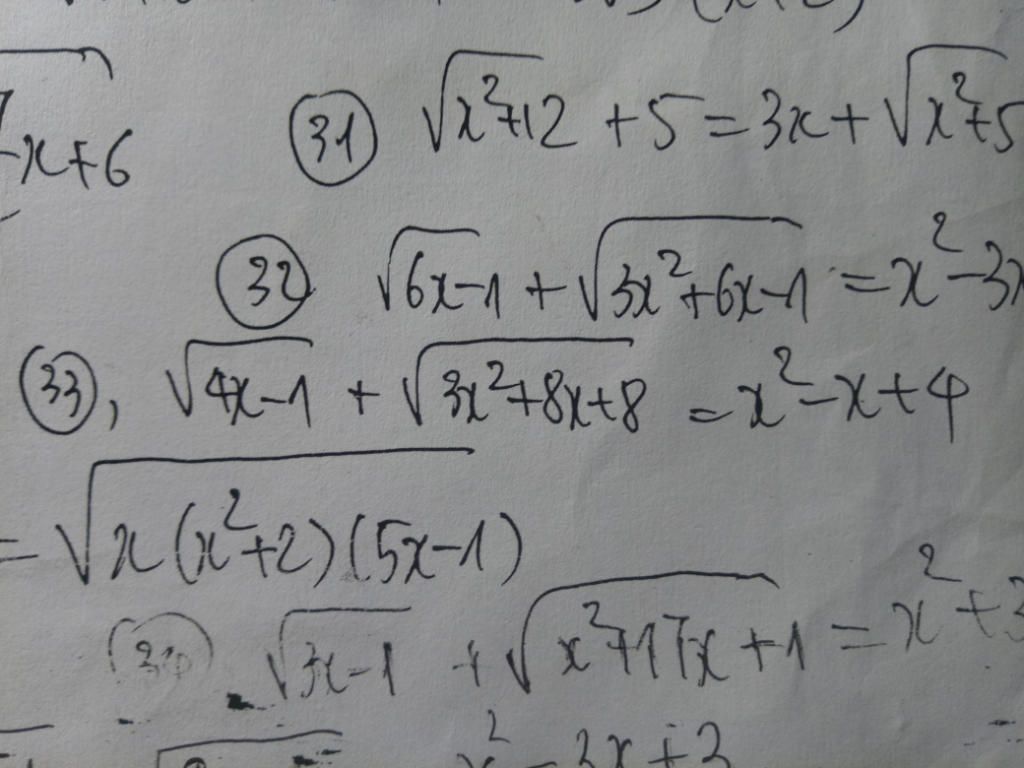 -x+6
31 √(x²+12) + 5 = 3x + √(x²+5
32 √(6x-1) + √(3x²+6x-1) = x²-3x
33, √(4x-1) + √(3x²+8x+8) = x²-x+4
= √(x(x²+2)(5x-1))
34 √(3x-1) + √(x²+17x+1) = x²+3
x²-3x+3